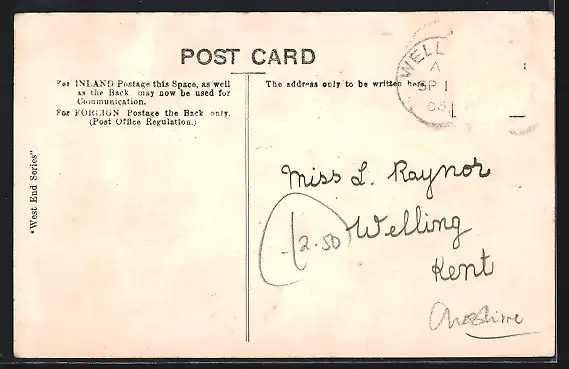 POST CARD
For INLAND Postage this Space, as well
as the Back, may now be used for
Communication.
For FOREIGN Postage the Back only.
(Post Office Regulation.)
The address only to be written here.
WELL
A
SP 1
05
"West End Series"
Miss L. Raynor
Welling
Kent
2.50
Cheshire